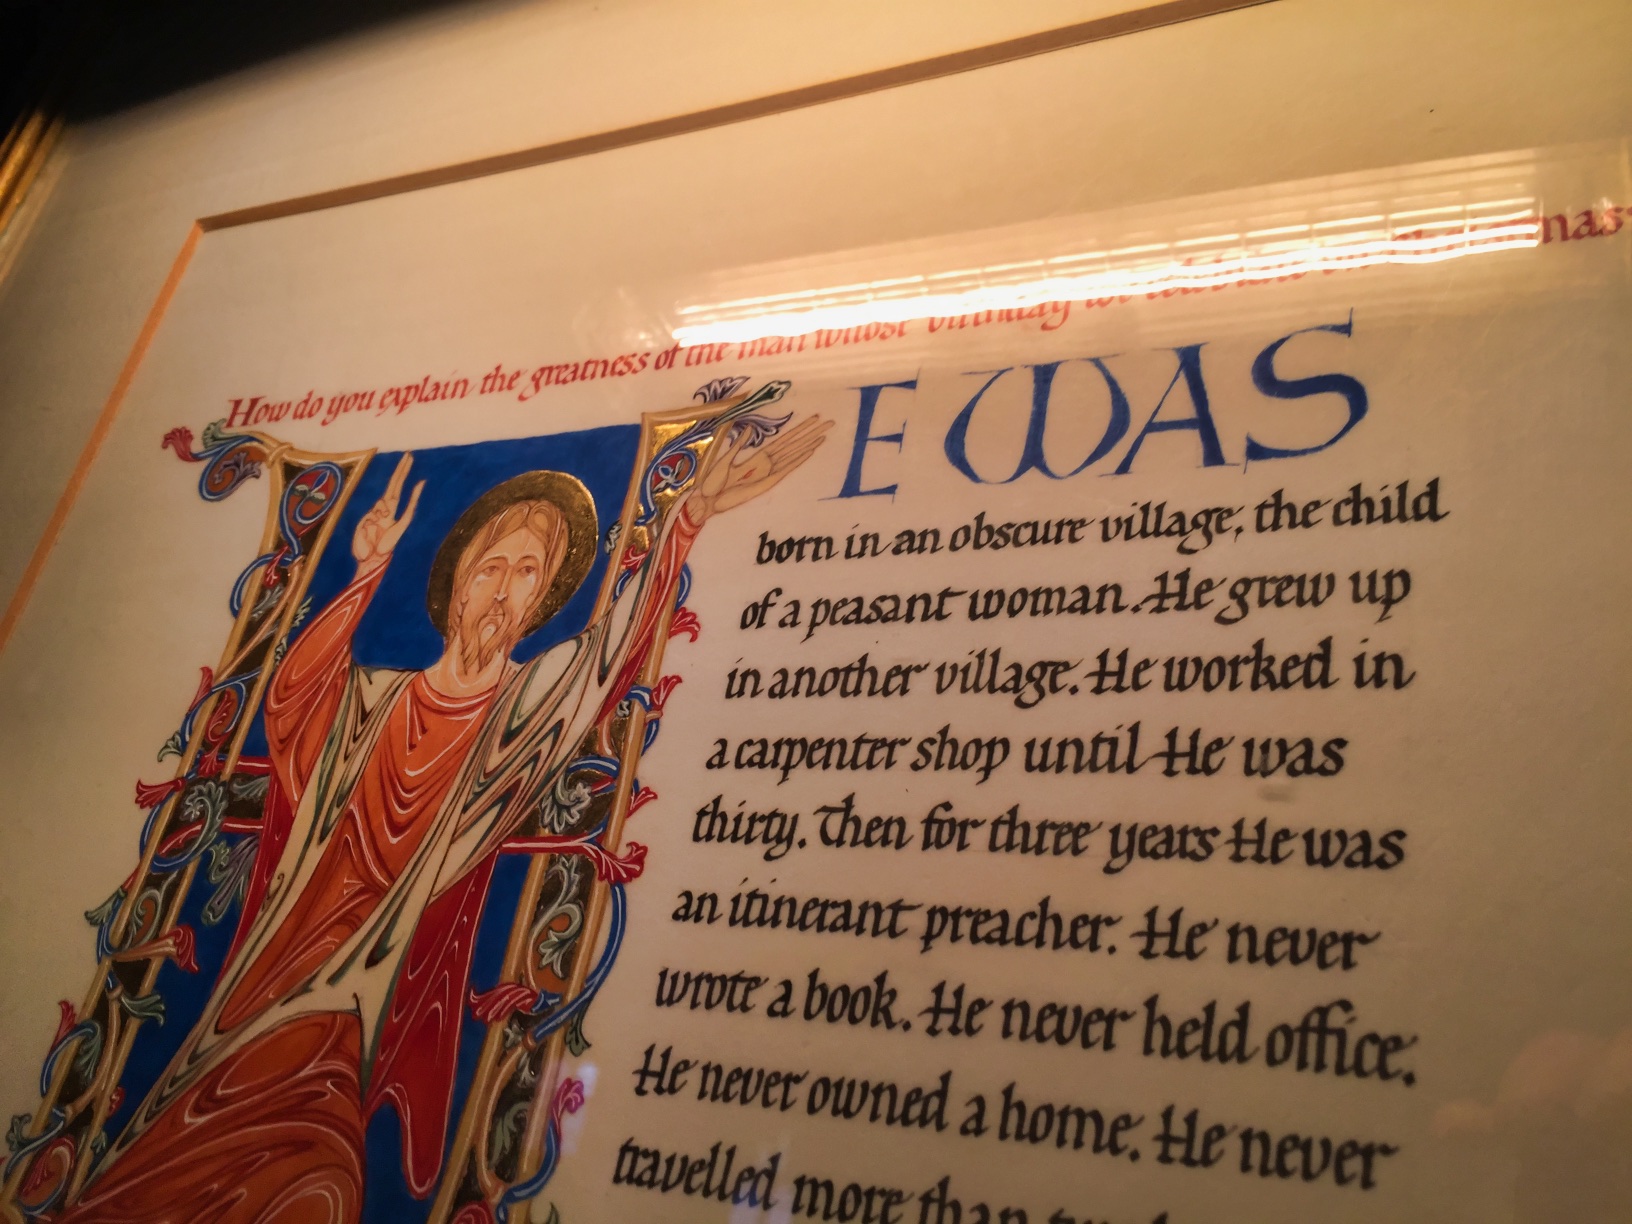 How do you explain the greatness of the man whose birthday we celebrate on Christmas
HE WAS
born in an obscure village, the child
of a peasant woman. He grew up
in another village. He worked in
a carpenter shop until He was
thirty. Then for three years He was
an itinerant preacher. He never
wrote a book. He never held office.
He never owned a home. He never
travelled more than